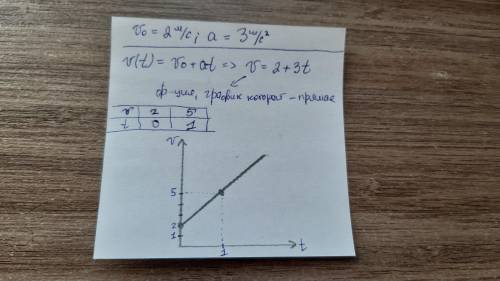 v₀ = 2 м/с; a = 3 м/с²
v(t) = v₀ + at => v = 2 + 3t
ф-ция, график которой - прямая
v 2 5
t 0 1
v
5
2
1
1 t